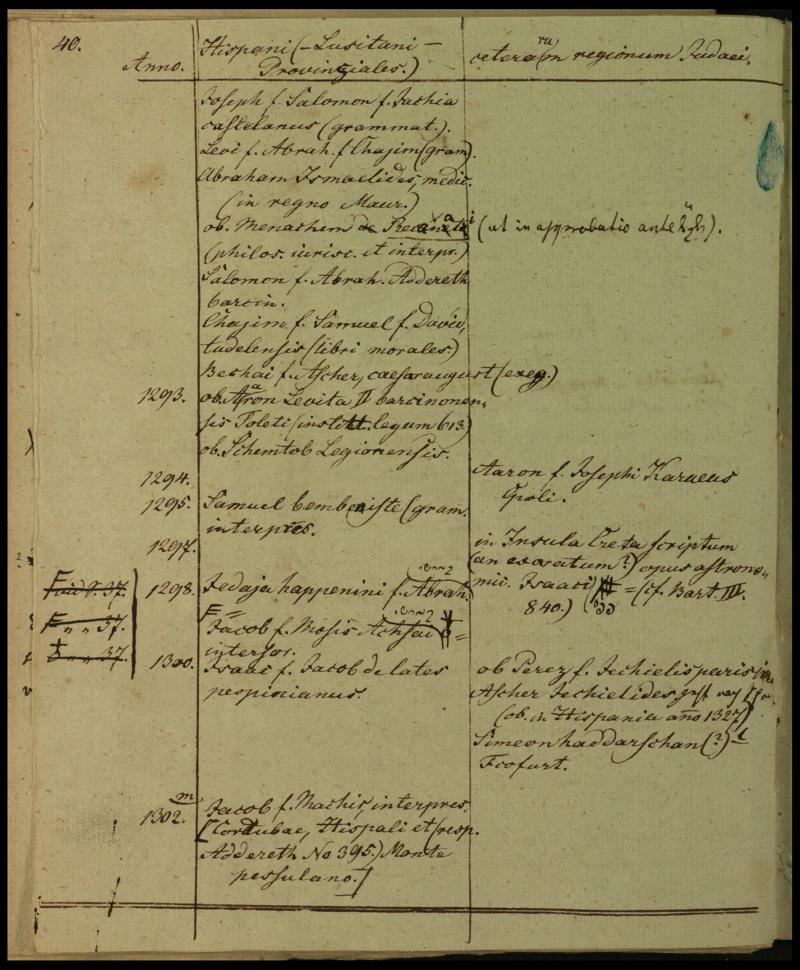 40.
Anno.
Hispani (- Lusitani -
Provinziales.)
veterarum regionum Judaei.
Joseph f. Salomon f. Jachia
castelanus (grammat.).
Levi f. Abrah. f Chajim (gram).
Abraham Ismaelides, medic.
(in regno Maur.)
ob. Menachem de
(ut in approbatio
(philos. iurisc. et interpr.)
Salomon f. Abrah. Addereth
barcin.
Chajim f. Samuel f. David,
tudelensis (libri morales)
Bechai f. Ascher, caesaraugust (exeg.)
1293. ob. Aaron Levita II barcinonen„
sis Toleti (instit. legum 613)
ob. Schemtob Legionensis.
1294. Aaron f. Josephi Karaeus
Cpoli.
1295. Samuel bombeniste (gram.
interpres.
1297. in Insula Creta scriptum
(an exaratum?) opus astrono„
mic. Isaaci = (cf. Bart. III.
840.)
1298. Jedaja happenini f. Abrah.
F. 37.
F „ „ 37.
„ „ 37.
Jacob f. Mosis Achsai
1300. Isaac f. Jacob de lates
pespinianus.
ob Perez f. Jechielis parisin.
Ascher Jechielides
(ob. in Hispania año 1327)
Simeon haddarschan (?)
Fcofurt.
1302. Jacob f. Machir, interpres.
[Cordubae, Hispali et (resp.
Addereth No 395.) Monte
pessulano.]